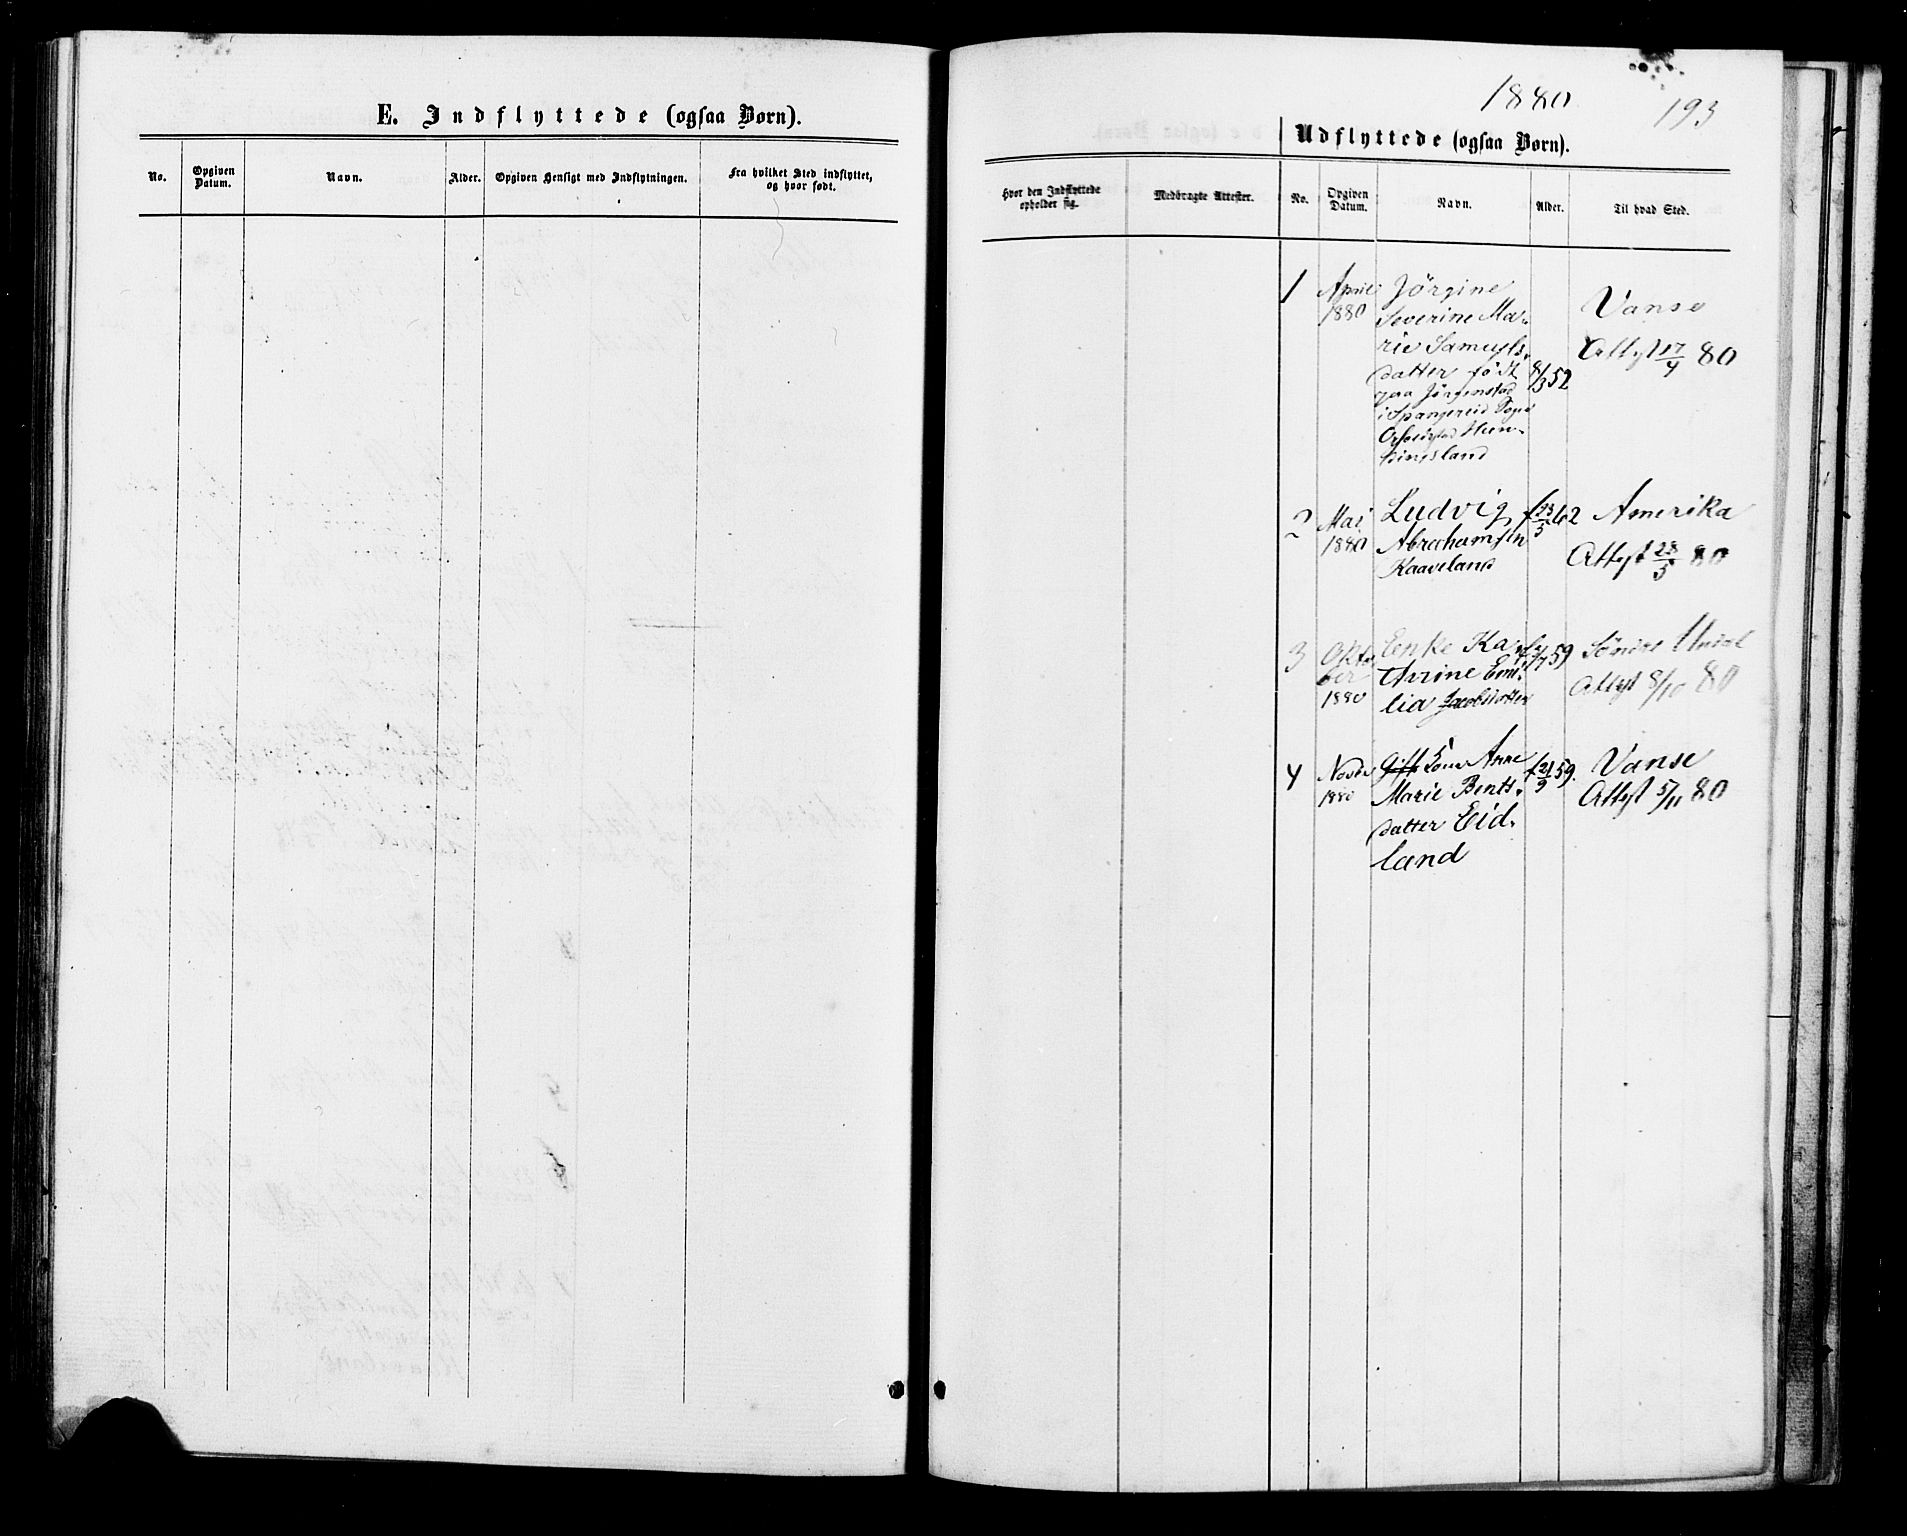 E. Indflyttede (ogsaa Børn).
No.
Opgiven
Datum.
Navn.
Alder.
Opgiven Hensigt med Indflytningen.
Fra hvilket Sted indflyttet,
og hvor født.
1880
193
Udflyttede (ogsaa Børn).
Hvor den Indflyttede
opholder sig.
Medbragte Attester.
No.
Opgiven
Datum.
Navn.
Alder.
Til hvad Sted.
1
April
1880
Jörgine
Severine Ma-
rie Samuels-
datter född
paa Jörgenstad
i Spangereid
8/3 52
Vanse
Attest 17/4 80
2
Mai
1880
Ludvig
Abrahamsen
Kaaveland
Amerika
Attest 28/5 80
3
Okto
ber
1880
Enke Ka-
thrine Emi-
lia Jacobsdatter
59
Söndre
Attest 8/10 80
4
Novbr
1880
Gift Kone Anne
Marie Bents-
datter Eid-
land
f 21/9 59.
Vanse
Attest 5/11 80